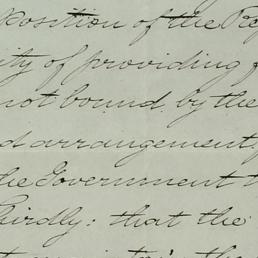 position of the Re
ity of providing f
not bound by the
d arrangement,
the Government t
Thirdly: that the